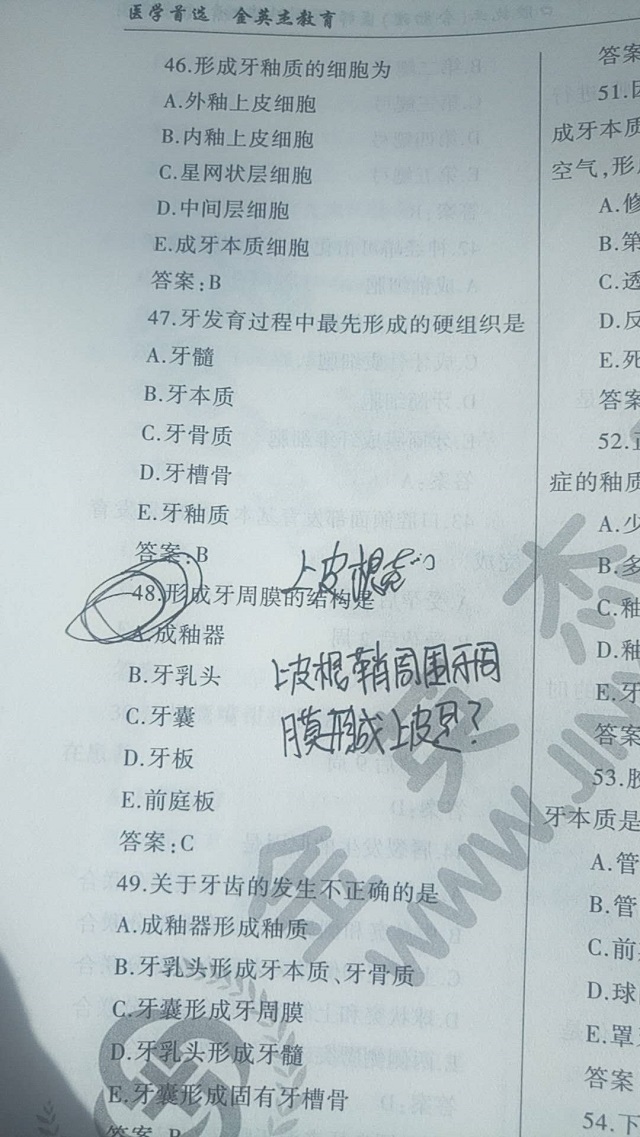 医学首选 金英杰教育
46.形成牙釉质的细胞为
A.外釉上皮细胞
B.内釉上皮细胞
C.星网状层细胞
D.中间层细胞
E.成牙本质细胞
答案:B
47.牙发育过程中最先形成的硬组织是
A.牙髓
B.牙本质
C.牙骨质
D.牙槽骨
E.牙釉质
答案:B
上皮根
48.形成牙周膜的结构是
A.成釉器
B.牙乳头
上皮根鞘周围牙周
C.牙囊
膜形成上皮是?
D.牙板
E.前庭板
答案:C
49.关于牙齿的发生不正确的是
A.成釉器形成釉质
B.牙乳头形成牙本质、牙骨质
C.牙囊形成牙周膜
D.牙乳头形成牙髓
E.牙囊形成固有牙槽骨
答案:B
答案
51.
成牙本质
空气,形
A.修
B.第
C.透
D.反
E.死
答案
52.
症的釉质
A.少
B.多
C.釉
D.釉
E.牙
答案
53.
牙本质是
A.管
B.管
C.前
D.球
E.罩
答案
54.下
金英杰
WWW.JIN